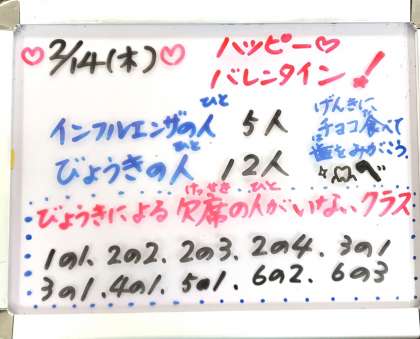 2/14(木)
ハッピー♡
バレンタイン!
ひと
インフルエンザの人 5人
ひと
びょうきの人 12人
げんきに、
チョコ食べて
は
歯をみがこう。
けっせき ひと
びょうきによる欠席の人がいないクラス
1の1、2の2、2の3、2の4、3の1
3の1、4の1、5の1、6の2、6の3